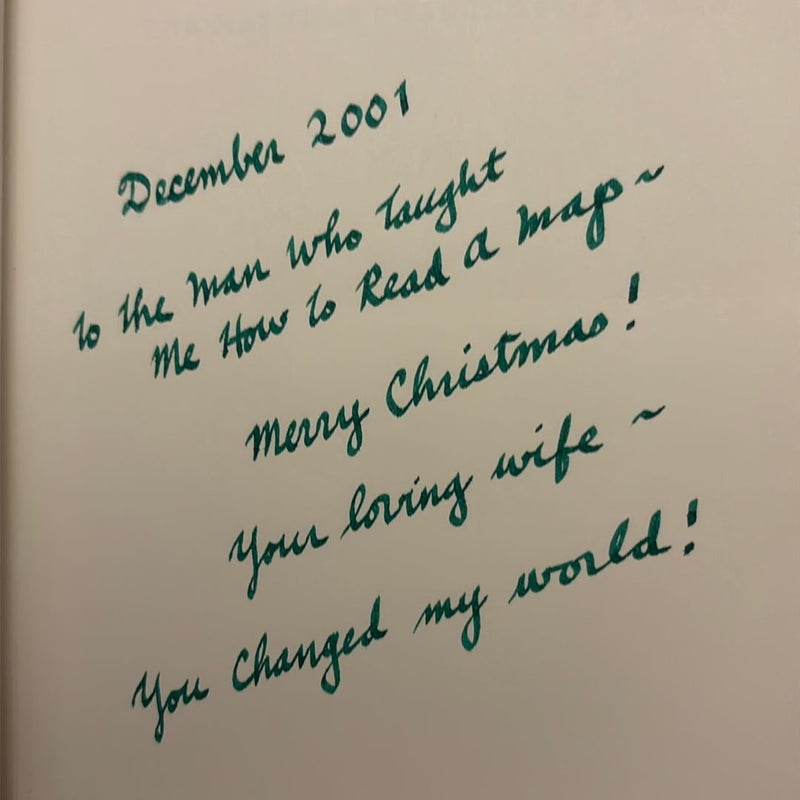 December 2001
to the Man Who taught
Me How to Read A Map ~
Merry Christmas!
Your loving wife ~
You Changed my world!